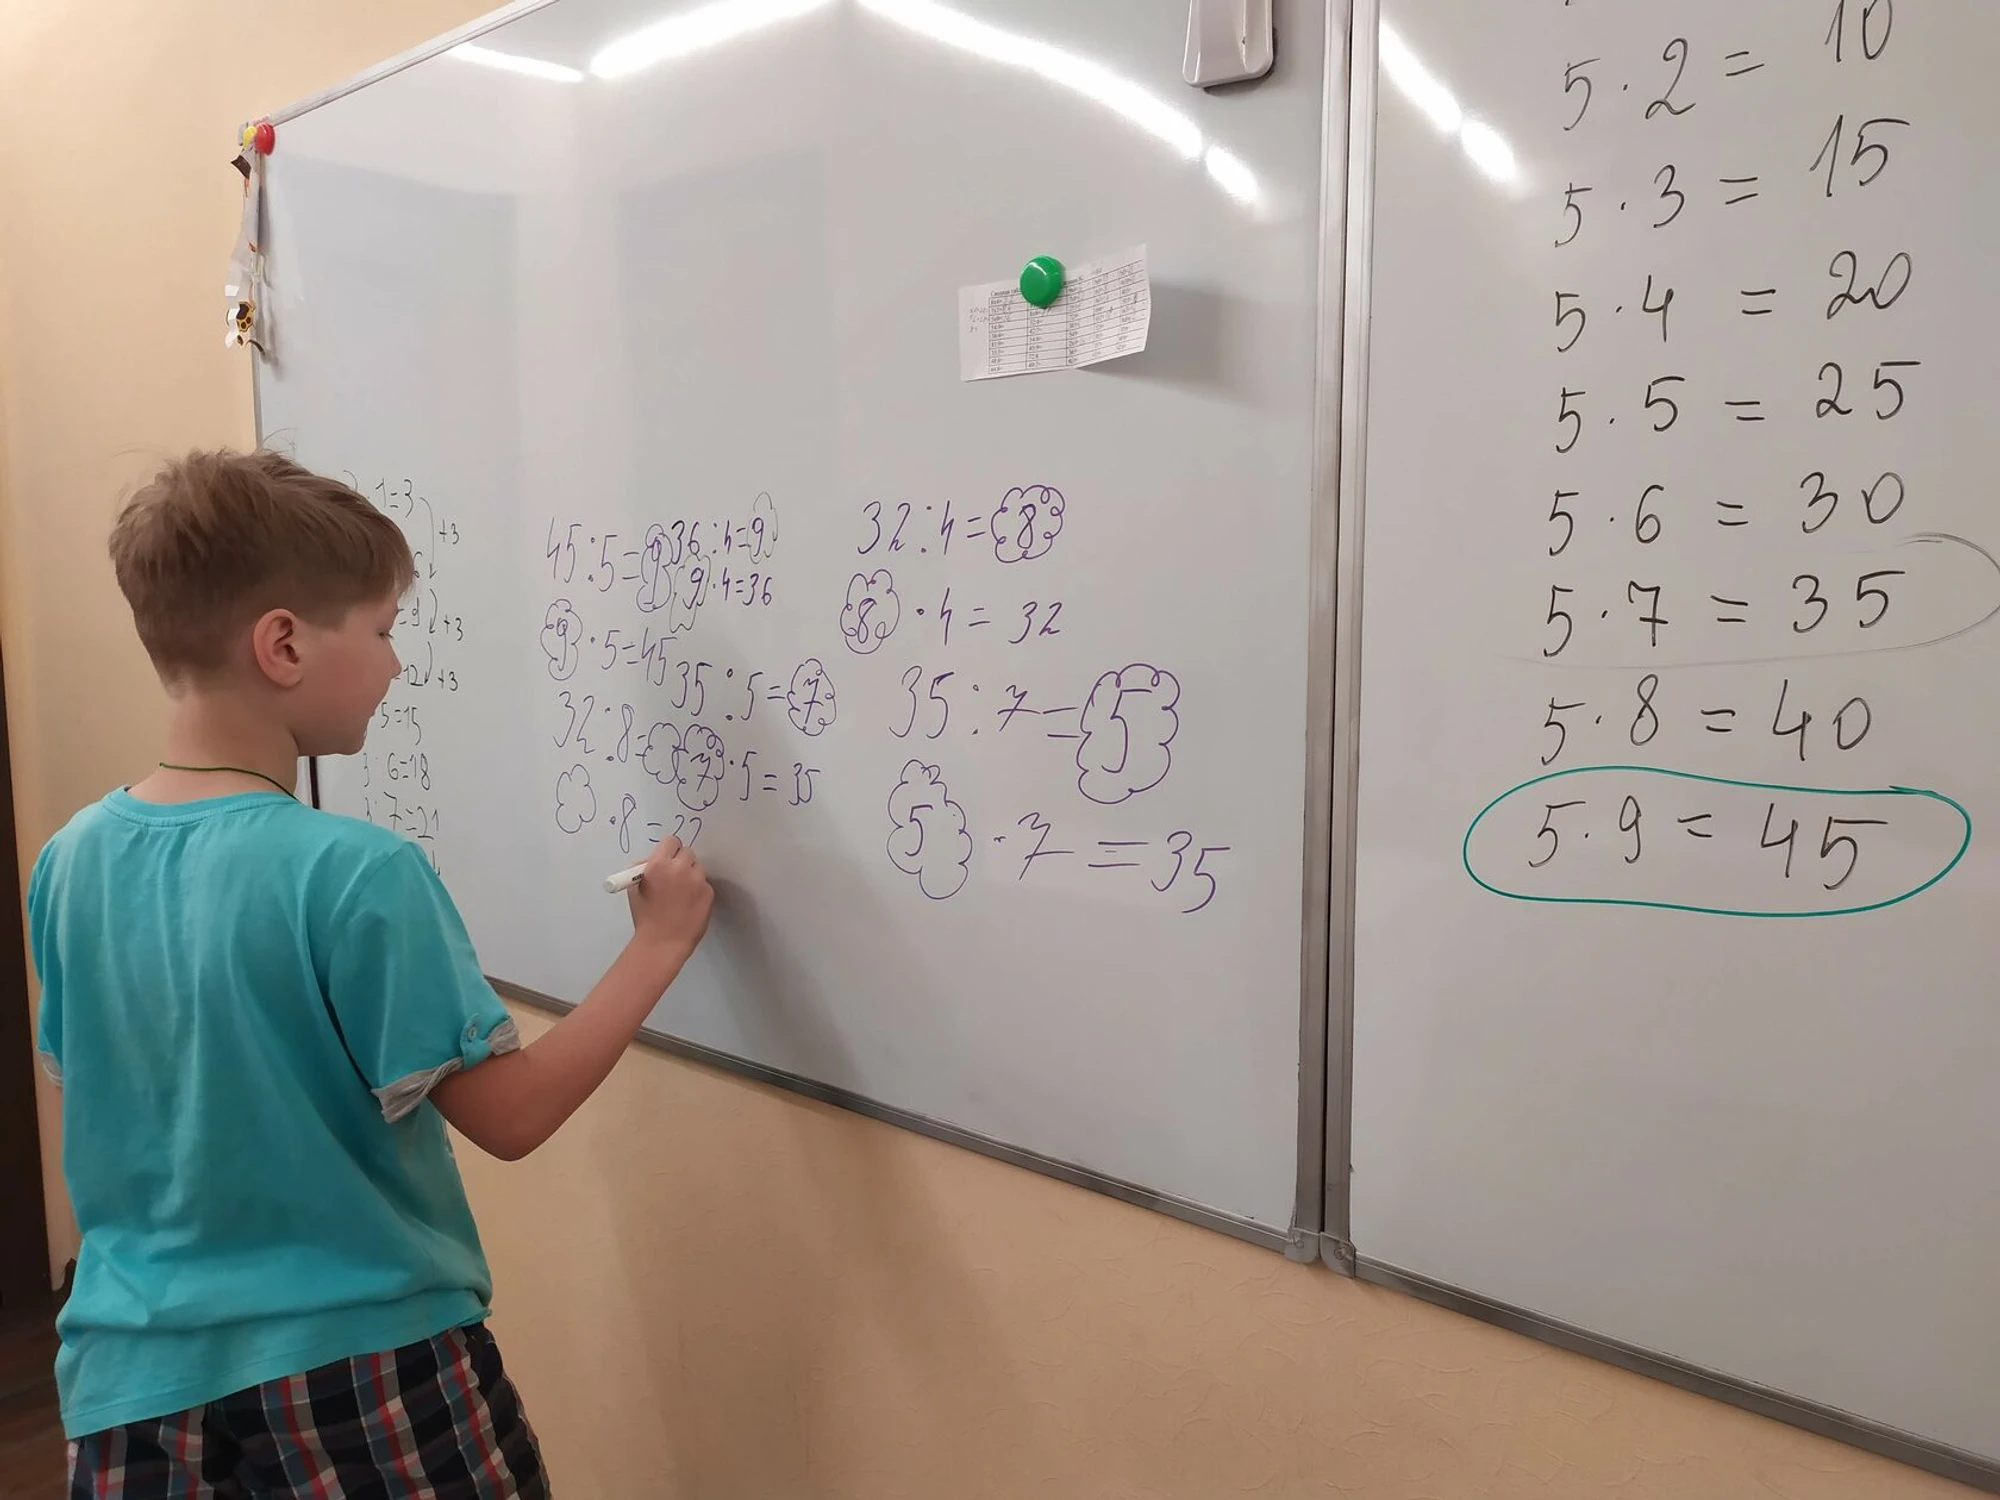 1=3
+3
=9
+3
12
+3
5=15
3·6=18
3·7=21
45:5=9
9·5=45
32:8=
·8=32
36:4=9
9·4=36
35:5=7
7·5=35
32:4=8
8·4=32
35:7=5
5·7=35
5·2=10
5·3=15
5·4=20
5·5=25
5·6=30
5·7=35
5·8=40
5·9=45